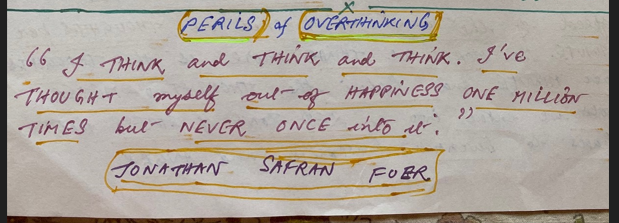 PERILS of OVERTHINKING
"I THINK and THINK and THINK. I've
THOUGHT myself out of HAPPINESS ONE MILLION
TIMES but NEVER ONCE into it."
JONATHAN SAFRAN FOER